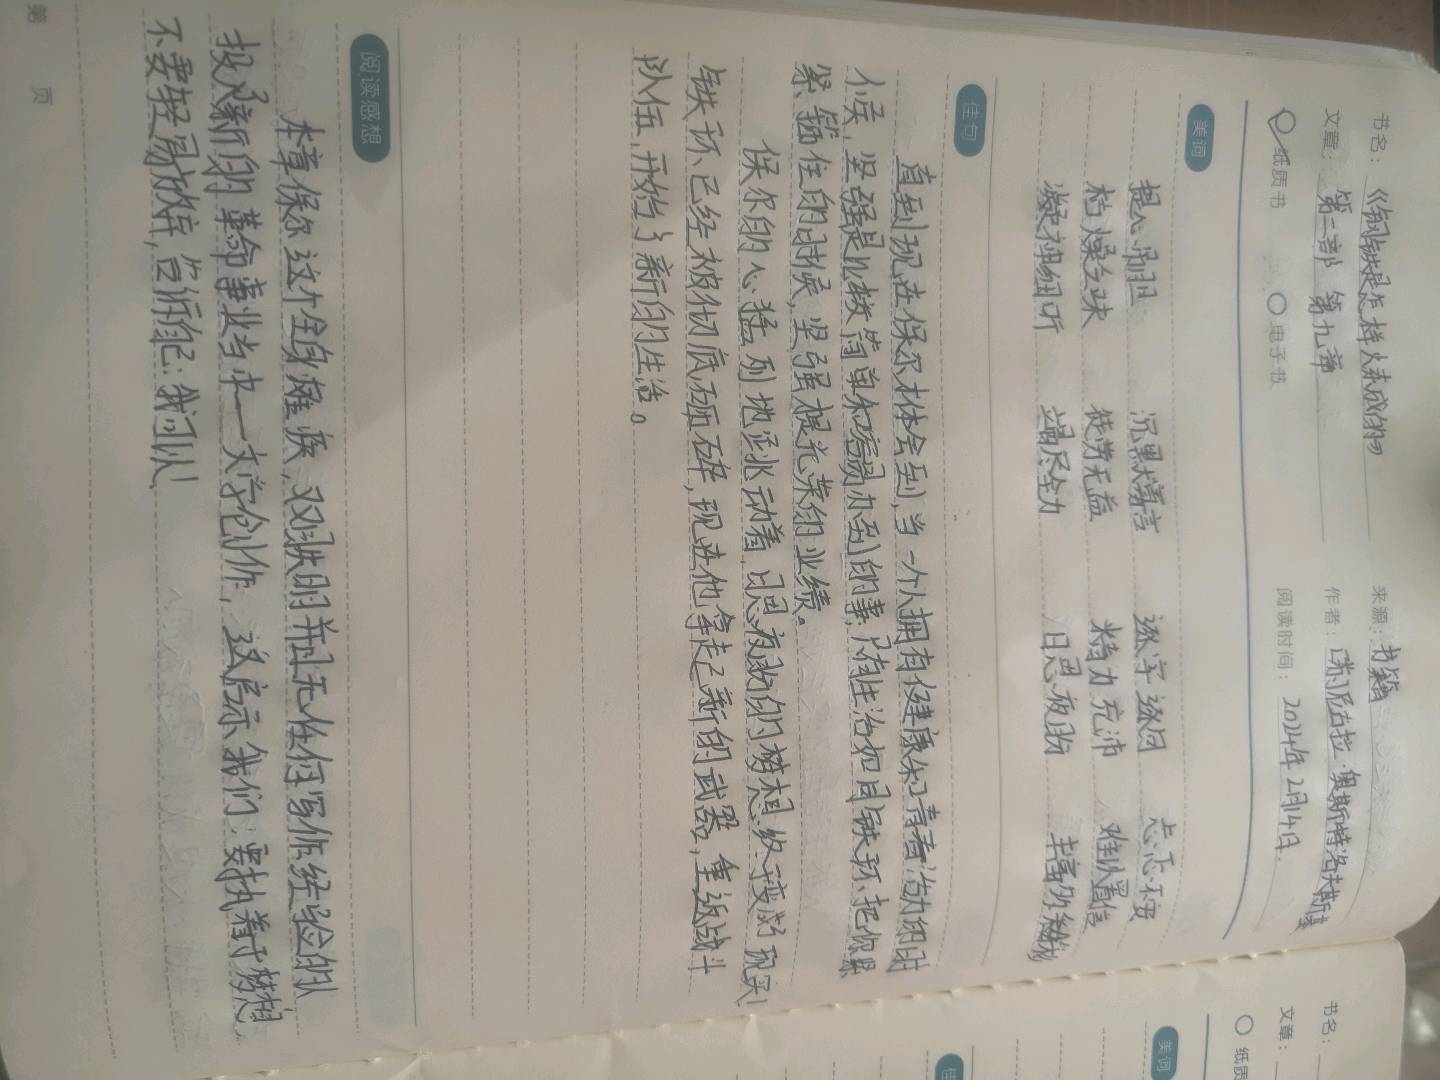 书名：《钢铁是怎样炼成的》
来源：书籍
文章：第二部 第九章
作者：[苏]尼古拉·奥斯特洛夫斯基
纸质书 电子书
阅读时间：2024年2月14日
美词
提心吊胆 沉默寡言 逐字逐句 忐忑不安
枯燥乏味 徒劳无益 精力充沛 难以置信
凝神细听 竭尽全力 日思夜盼
佳句
直到现在保尔才体会到，当一个人拥有健康和青春活力的时
候，坚强是比较简单和容易办到的事，只有生活如同铁环把你紧
紧箍住的时候，坚强是光荣的业绩。
保尔的心猛烈地跳动着，日思夜盼的梦想终于变成了现实！
铁环已经被彻底砸碎，现在他拿起了新的武器，重返战斗
队伍，开始了新的生活。
阅读感想
本章保尔这个全身瘫痪，双眼失明并且无任何写作经验的人
投入新的革命事业当中——文学创作，这启示我们：要执着于梦想，
不要轻易放弃，告诉自己：我可以！
第 页
书名：
文章：
纸质
美词
佳